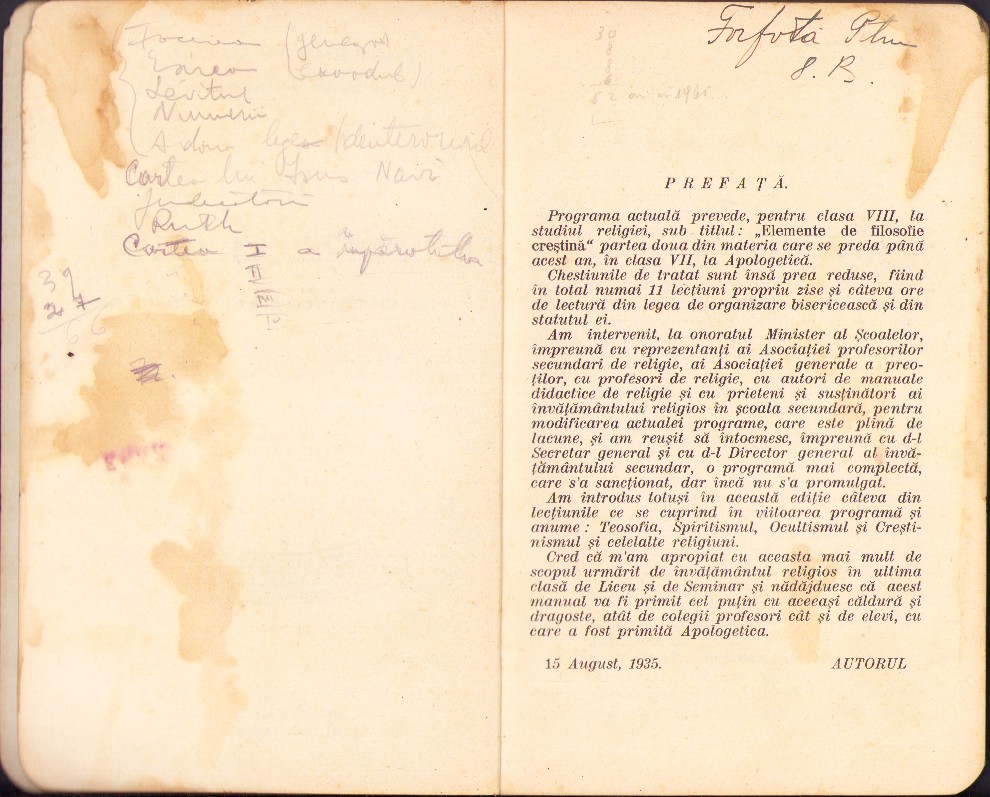 Facerea (genegа)
Exodul)
Levitul
Numerii
A doua lege
Cartea lui Isus Navi
Judecători
Ruth
Cartea I a împăratilor
39
27
66
30
8
8
6
52
Forfotă
8. B.
PREFAȚĂ.
Programa actuală prevede, pentru clasa VIII, la
studiul religiei, sub titlul: „Elemente de filosofie
creștină“ partea doua din materia care se preda până
acest an, în clasa VII, la Apologetică.
Chestiunile de tratat sunt însă prea reduse, fiind
în total numai 11 lecțiuni propriu zise și câteva ore
de lectură din legea de organizare bisericească și din
statutul ei.
Am intervenit, la onoratul Minister al Școalelor,
împreună cu reprezentanți ai Asociației profesorilor
secundari de religie, ai Asociației generale a preo-
ților, cu profesori de religie, cu autori de manuale
didactice de religie și cu prieteni și susținători ai
învățământului religios în școala secundară, pentru
modificarea actualei programe, care este plină de
lacune, și am reușit să întocmesc, împreună cu d-l
Secretar general și cu d-l Director general al învă-
țământului secundar, o programă mai complectă,
care s'a sancționat, dar încă nu s'a promulgat.
Am introdus totuși în această ediție câteva din
lecțiunile ce se cuprind în viitoarea programă și
anume: Teosofia, Spiritismul, Ocultismul și Crești-
nismul și celelalte religiuni.
Cred că m'am apropiat cu aceasta mai mult de
scopul urmărit de învățământul religios în ultima
clasă de Liceu și de Seminar și nădăjduesc că acest
manual va fi primit cel puțin cu aceeași căldură și
dragoste, atât de colegii profesori cât și de elevi, cu
care a fost primită Apologetica.
15 August, 1935. AUTORUL